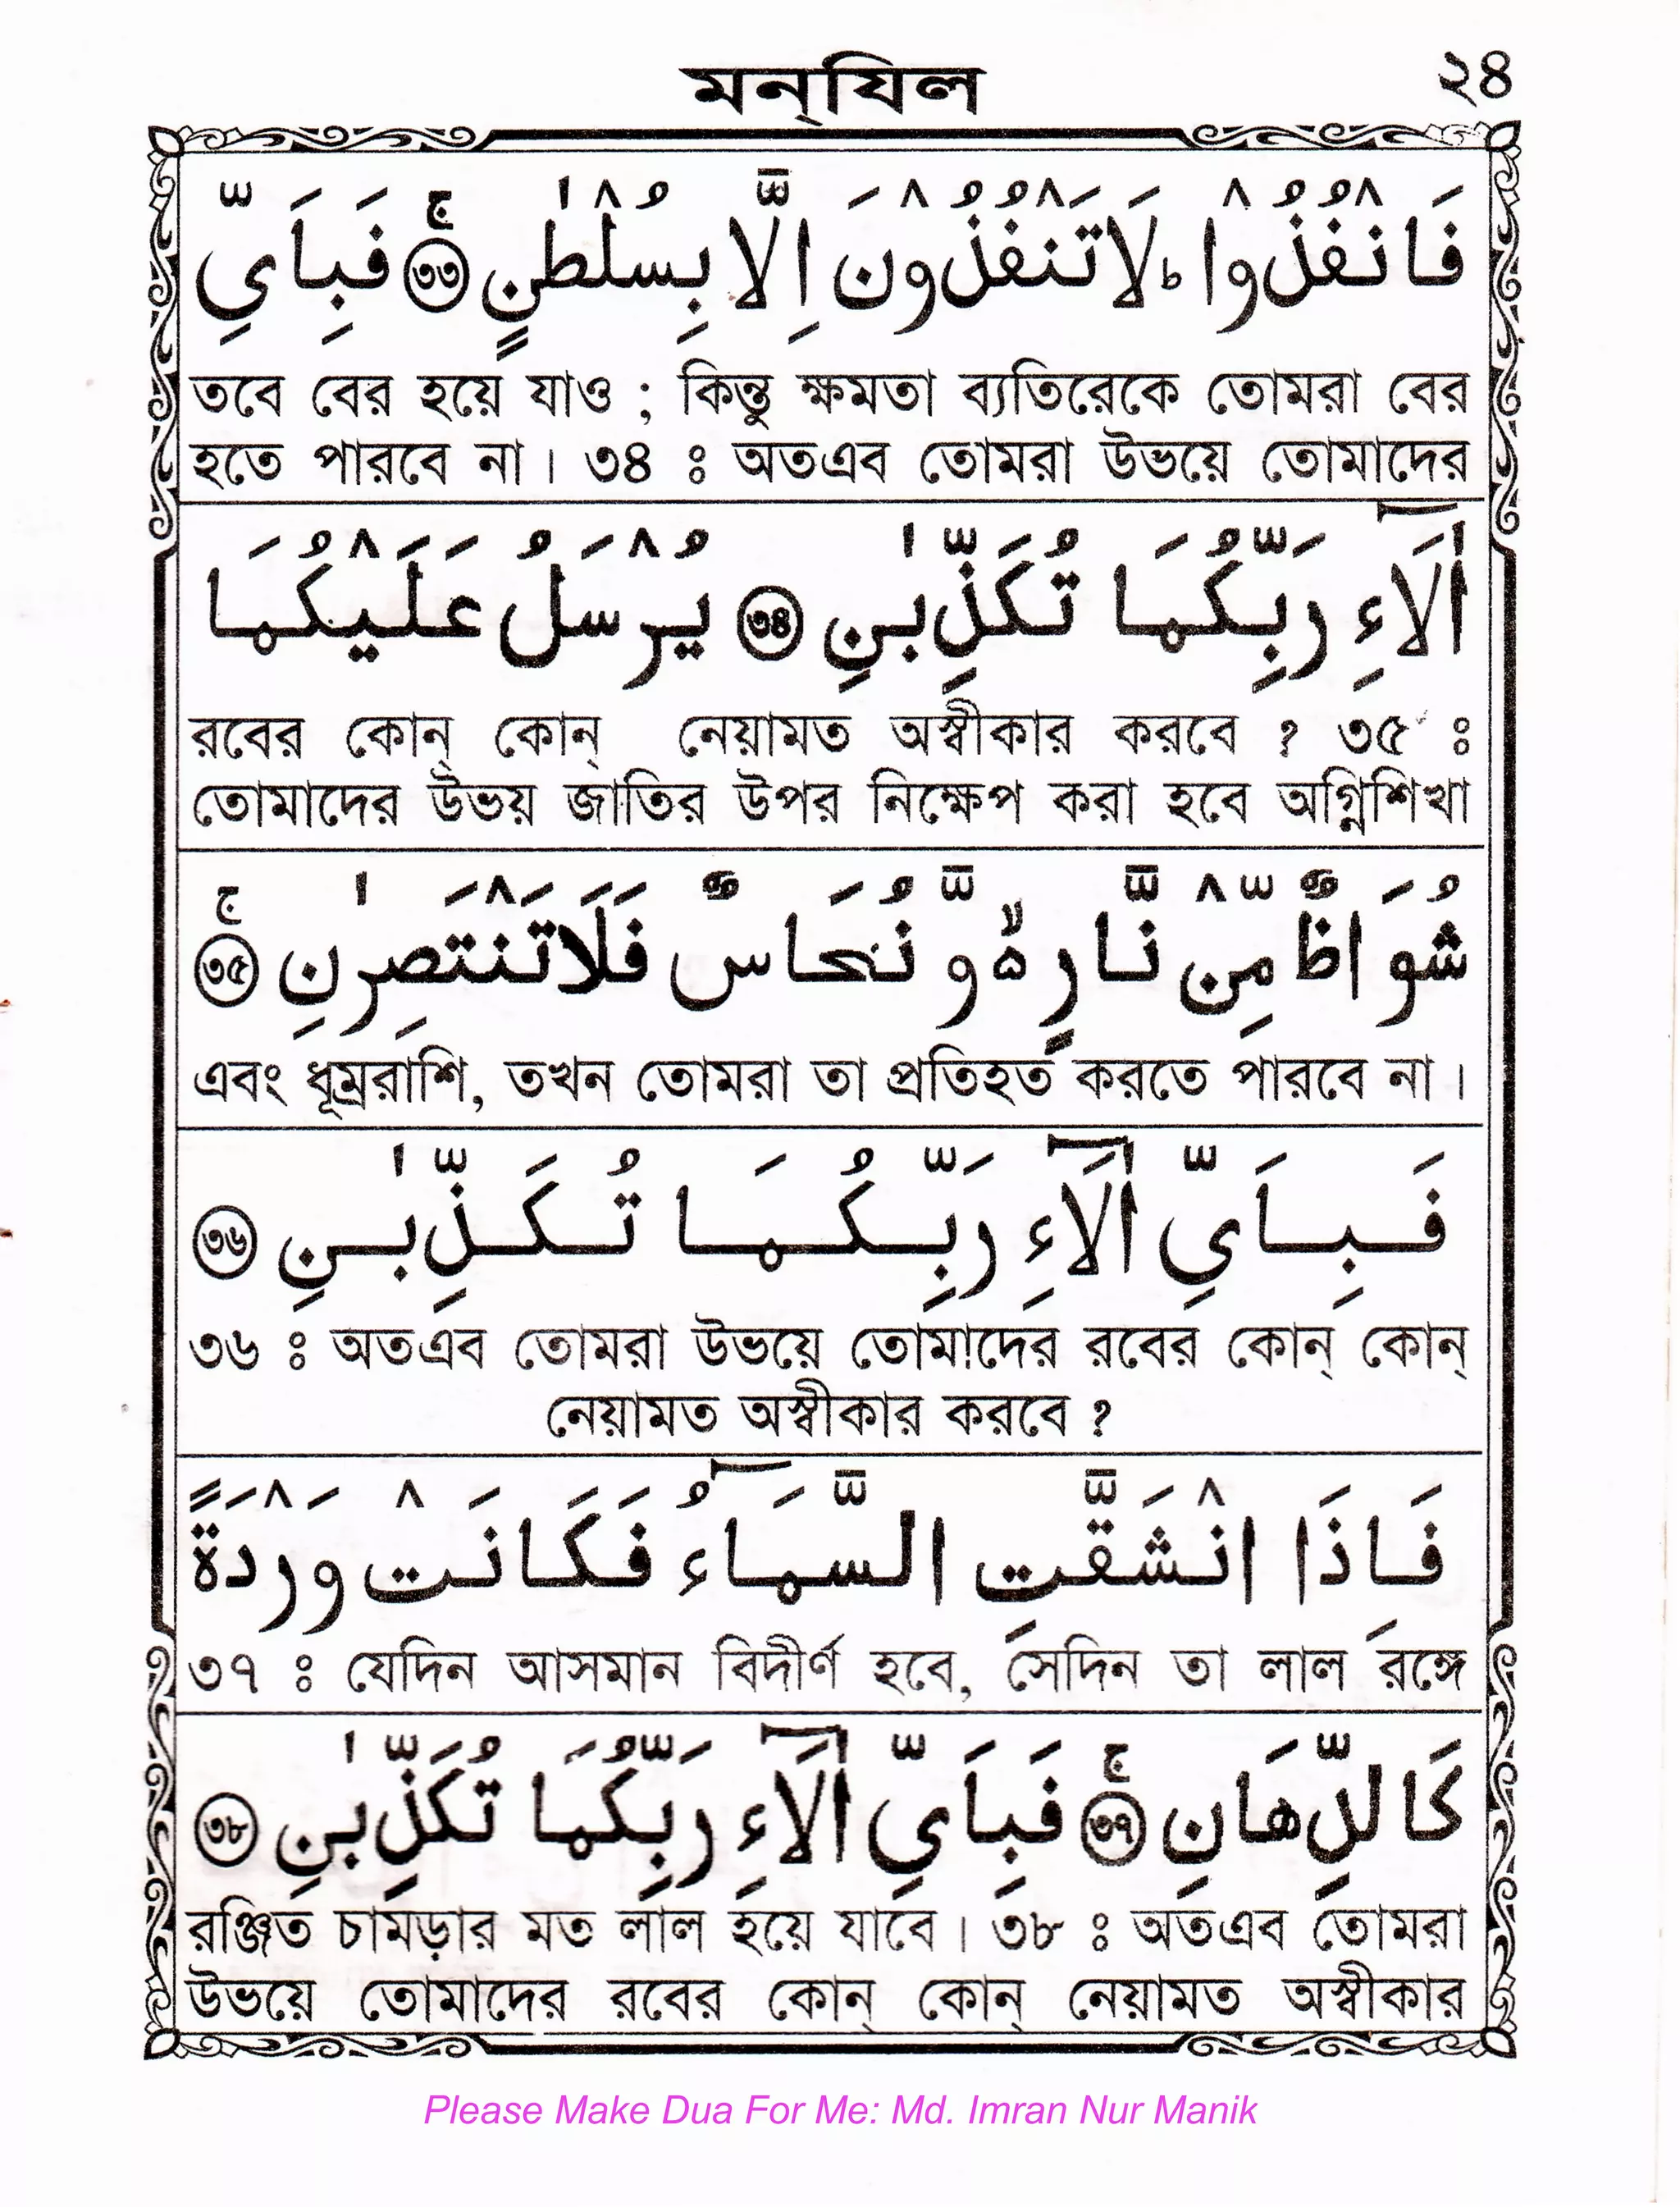 মন্‌যিল
২৪
فَانْفُذُوْا ؕ لَا تَنْفُذُوْنَ اِلَّا بِسُلْطٰنٍ ۚ ﴿৩৩﴾ فَبِاَیِّ
তবে বের হয়ে যাও ; কিন্তু ক্ষমতা ব্যতিরেকে তোমরা বের
হতে পারবে না। ৩৪ ঃ অতএব তোমরা উভয়ে তোমাদের
اٰلَآءِ رَبِّكُمَا تُكَذِّبٰنِ ﴿৩৪﴾ یُرْسَلُ عَلَیْكُمَا
রবের কোন্ কোন্ নেয়ামত অস্বীকার করবে ? ৩৫ ঃ
তোমাদের উভয় জাতির উপর নিক্ষেপ করা হবে অগ্নিশিখা
شُوَاظٌ مِّنْ نَّارٍ ۙ۬ وَّ نُحَاسٌ فَلَا تَنْتَصِرٰنِ ۚ ﴿৩৫﴾
এবং ধূম্ররাশি, তখন তোমরা তা প্রতিহত করতে পারবে না।
فَبِاَیِّ اٰلَآءِ رَبِّكُمَا تُكَذِّبٰنِ ﴿৩৬﴾
৩৬ ঃ অতএব তোমরা উভয়ে তোমাদের রবের কোন্ কোন্
নেয়ামত অস্বীকার করবে ?
فَاِذَا انْشَقَّتِ السَّمَآءُ فَكَانَتْ وَرْدَةً
৩৭ ঃ যেদিন আসমান বিদীর্ণ হবে, সেদিন তা লাল রঙ্গে
كَالدِّهَانِ ۚ ﴿৩৭﴾ فَبِاَیِّ اٰلَآءِ رَبِّكُمَا تُكَذِّبٰنِ ﴿৩৮﴾
রঞ্জিত চামড়ার মত লাল হয়ে যাবে। ৩৮ ঃ অতএব তোমরা
উভয়ে তোমাদের রবের কোন্ কোন্ নেয়ামত অস্বীকার
Please Make Dua For Me: Md. Imran Nur Manik